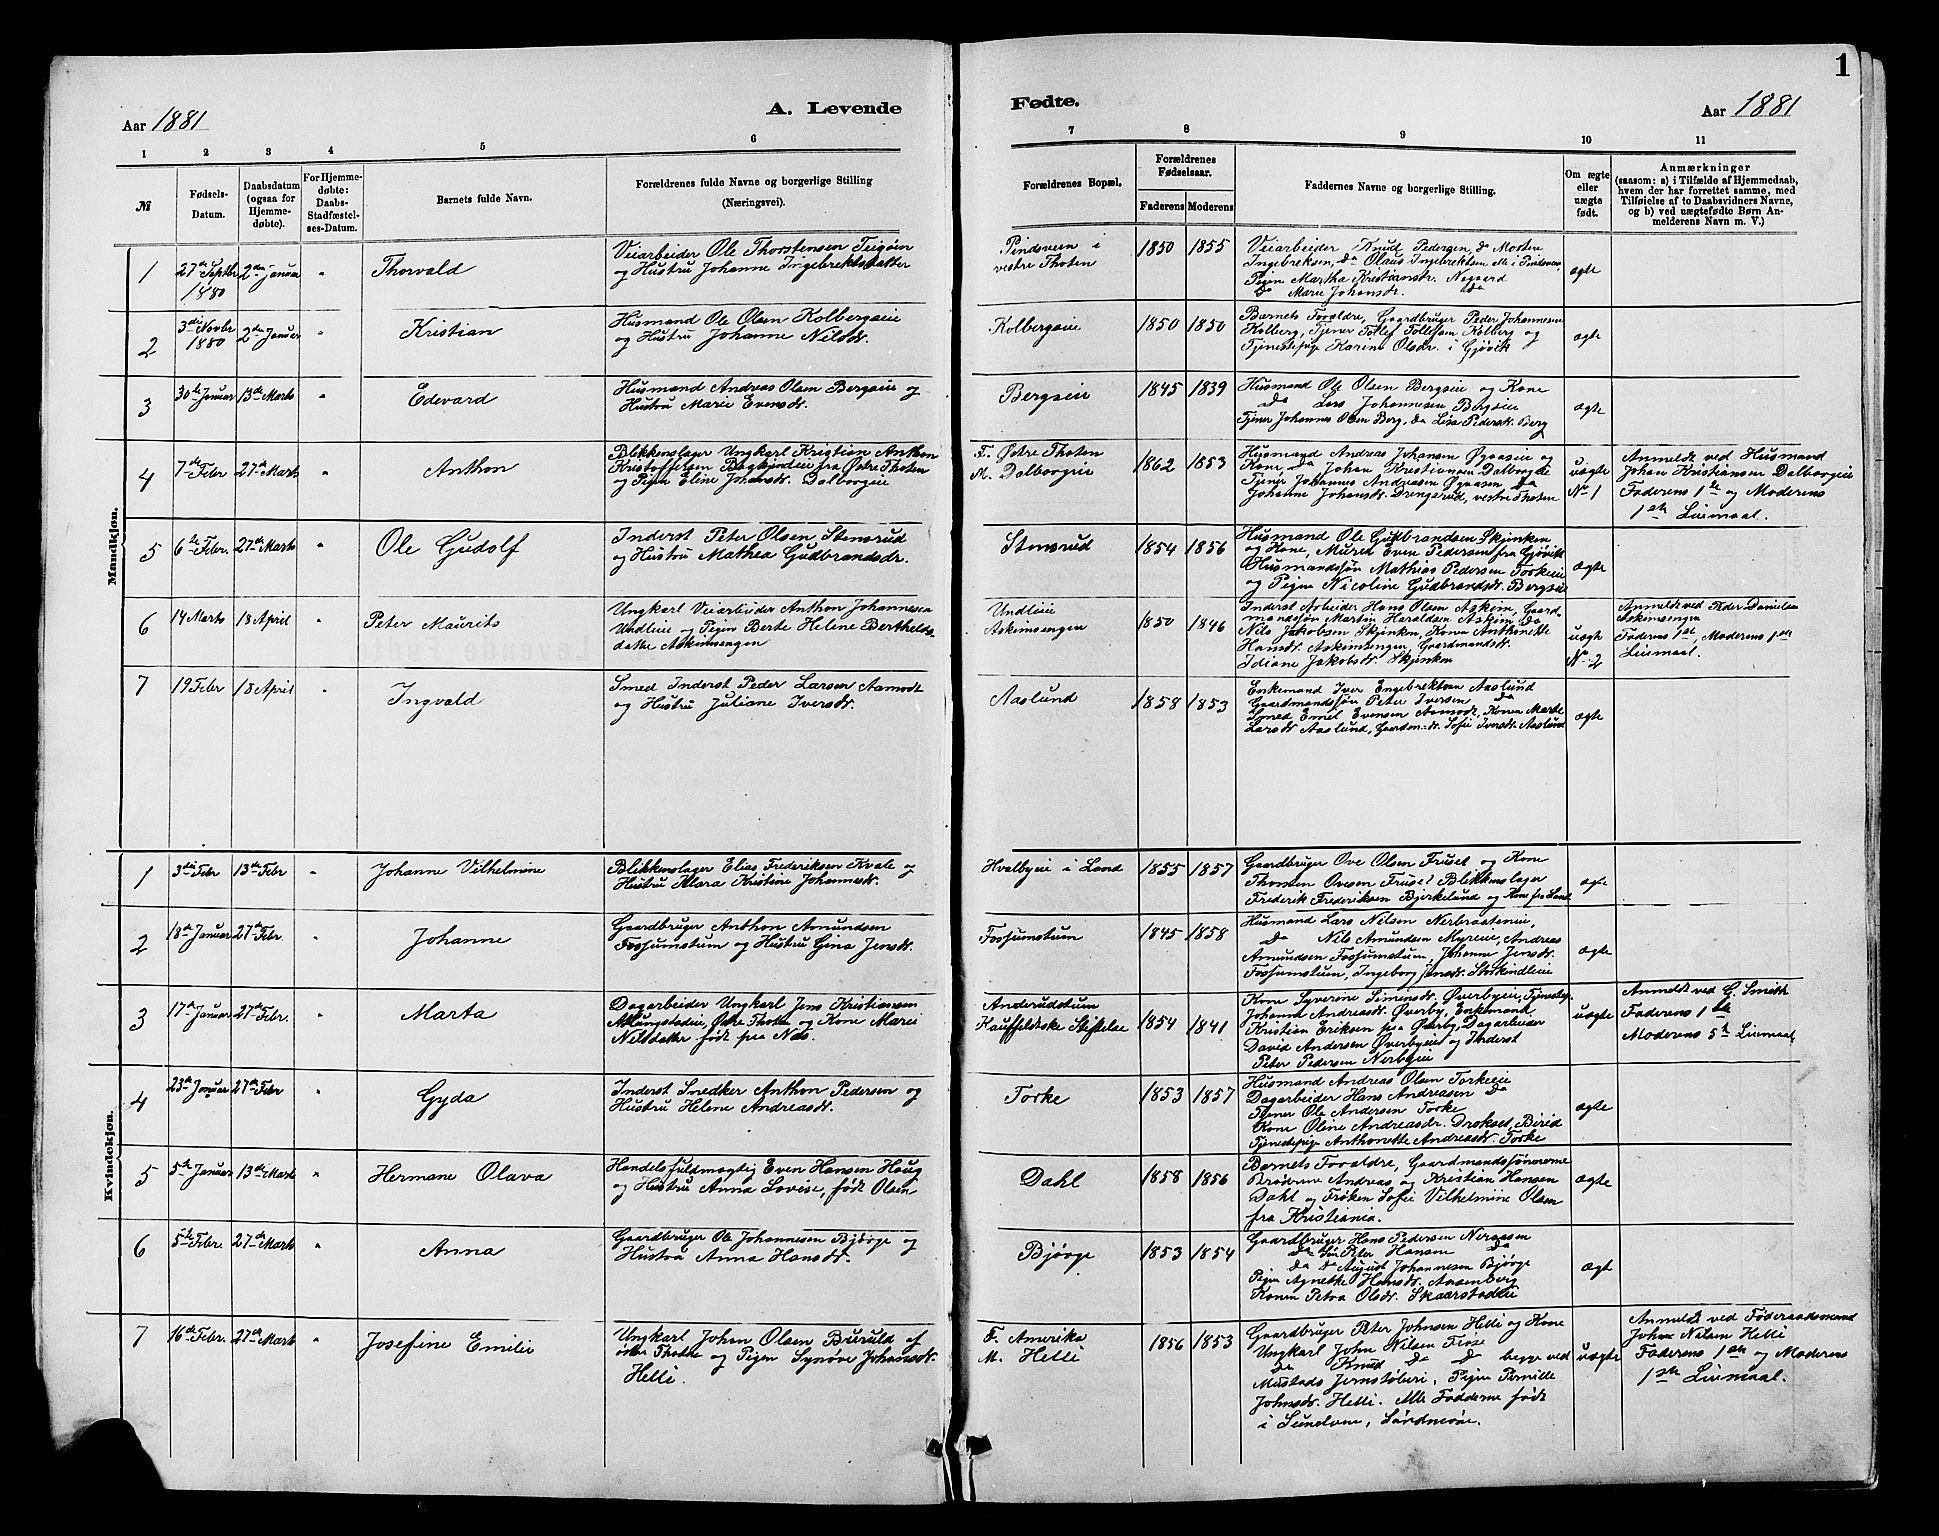 1
Aar 1881
A. Levende
Fødte.
Aar 1881
1 2 3 4 5 6 7 8 9 10 11
№
Fødsels-
Datum.
Daabsdatum
(ogsaa for
Hjemme-
døbte).
For Hjemme-
døbte:
Daabs-
Stadfæstel-
ses-Datum.
Barnets fulde Navn.
Forældrenes fulde Navne og borgerlige Stilling
(Næringsvei).
Forældrenes Bopæl.
Forældrenes
Fødselsaar.
Faderens Moderens
Faddernes Navne og borgerlige Stilling.
Om ægte
eller
uægte
født.
Anmærkninger
(saasom: a) i Tilfælde af Hjemmedaab,
hvem der har forrettet samme, med
Tilføielse af to Daabsvidners Navne,
og b) ved uægtefødte Børn An-
melderens Navn m. V.)
Mandkjøn.
1
27de Septbr
1880
2den Januar
"
Thorvald
Veiarbeider Ole Thorstensen Teigøien
og Hustru Johanne Ingebrektsdatter
Pindsveen i
vestre Thoten
1850 1855
Veiarbeider Knud Pedersen, do Morten
Ingebreksen, do Olaus Ingebrektsen Alle i Pindsveen,
Pigen Martha Kristiansdr. Nøgaard
do Marie Johansdr. do
ægte
2
3die Novbr
1880
2den Januar
"
Kristian
Husmand Ole Olsen Kolbergseie
og Hustru Johanne Nilsdr.
Kolbergseie
1850 1850
Barnets Forældre, Gaardbruger Peder Johannesen
Kolberg, Tjener Tollef Tollefsen Kolberg og
Tjenestepige Karine Olsdr. i Gjøvik
ægte
3
30te Januar
13de Marts
"
Edevard
Husmand Andreas Olsen Bergseie og
Hustru Marie Evensdr.
Bergseie
1845 1839
Husmand Ole Olsen Bergseie og Kone
do Lars Johannesen Bergseie
Tjener Johannes Olsen Berg, do Lisa Pedersdr. Berg
ægte
4
7de Febr
27de Marts
"
Anthon
Blikkenslager Ungkarl Kristian Anthon
Kristoffersen fra Østre Thoten
og Pigen Eline Johansdr. Dalborgeie
F. Østre Thoten
M. Dalborgeie
1862 1853
Husmand Andreas Johansen Øgaaseie og
Kone, do Johan Kristiansen Dalborgeie
Tjener Johannes Andreasen Øgaasen, do
Johanne Johansdr. Drengerud, vestre Thoten
uægte
No 1
Anmeldt ved Husmand
Johan Kristiansen Dalborgeie
Faderens 1ste og Moderens
1ste Leiemaal.
5
6te Febr.
27de Marts
"
Ole Gudolf
Inderst Peter Olsen Stensrud
og Hustru Mathea Gudbrandsdr.
Stensrud
1854 1856
Husmand Ole Gudbrandsen Skjenken
og Kone, Murer Even Pedersen fra Gjøvik
Husmandssøn Mathias Pedersen Torkeeie
og Pigen Nicoline Gudbrandsdr. Bergseie
ægte
6
14 Marts
18 April
"
Peter Maurits
Ungkarl Veiarbeider Anthon Johannesen
Undleie og Pigen Berte Helene Berthelds-
datter Askimsengen
Undleie
Askimsengen
1850 1846
Inderst Arbeider Hans Olsen Askim, Gaard-
mandssøn Martin Haraldsen Askim, do
Nils Jakobsen Skjenken, Konen Anthonette
Hansdr. Askimsengen, Gaardmandsdr.
Idiane Jakobsdr. Skjenken
uægte
No 2
Anmeldt ved Peder Danielsen
Askimsengen
Faderens 1ste, Moderens 1ste
Leiemaal.
7
19 Febr
18 April
"
Ingvald
Smed Inderst Peder Larsen Aamodt
og Hustru Juliane Iversdr.
Aaslund
1858 1853
Enkemand Iver Engebrektsen Aaslund
Gaardmandssøn Peter Iversen do
Smed Emil Evensen Aamodt, Konen Marte
Larsdr Aaslund, Gaardm. dr. Sofie Iversdr. Aaslund
ægte
Kvindekjøn.
1
3die Febr
13de Febr
"
Johanne Vilhelmine
Blikkenslager Elias Frederiksen Kvale og
Hustru Klara Kristine Johannesdr.
Hvalbyeie i Land
1855 1857
Gaardbruger Ove Olsen Fruset og Kone
Thomen Ovesen Fruset Blikkenslager
Frederik Frederiksen Bjerkelund og Kone fra Land
ægte
2
18de Januar
27de Febr
"
Johanne
Gaardbruger Anthon Amundsen
Fossumstuen og Hustru Gina Jensdr.
Fossumstuen
1845 1858
Husmand Lars Nilsen Nerbraateneie,
do Nils Amundsen Myreie, Andreas
Amundsen Fossumstuen, Johanne Jensdr.
Fossumstuen, Ingeborg Jensdr.
ægte
3
17de Januar
27de Febr.
"
Marta
Dagarbeider Ungkarl Jens Kristiansen
Østre Thoten og Kone Marie
Nilsdatter født paa Næs.
Anderudstuen
Kauffeldtske Stiftelse
1854 1841
Kone Syverine Simensdr. Øverbyeie, Tjenestep.
Johanne Andreasdr. Øverby, Enkemand
Kristian Eriksen paa Øverby, Dagarbeider
David Andersen Øverbyeie og Inderst
Peter Pedersen Nerbyeie
uægte
Anmeldt ved G. Smith
Faderens 1ste
Moderens 5te Leiemaal
4
23de Januar
27de Febr
"
Gyda
Inderst Snedker Anthon Pedersen og
Hustru Helene Andreasdr.
Torke
1853 1857
Husmand Andreas Olsen Torkeeie
Dagarbeider Hans Andreasen do
Tjener Ole Andersen Torke
Kone Oline Andreasdr. Drokset, Birid
Tjenestepige Anthonette Andreasdr. Torke
ægte
5
5te Januar
13de Marts
"
Hermane Olava
Handelsfuldmægtig Even Hansen Houg
og Hustru Anna Lovise, født Olsen
Dahl
1858 1856
Barnets Forældre, Gaardmandssønnerne
Brødrene Andreas og Kristian Hansen
Dahl og Frøken Sofie Vilhelmine Olsen
fra Kristiania.
ægte
6
5te Febr.
27de Marts
"
Anna
Gaardbruger Ole Johannesen Bjørge og
Hustru Anna Hansdr.
Bjørge
1853 1854
Gaardbruger Hans Pedersen Neraasen
do Søn Peter Hansen do
do do August Johannesen Bjørge
Pigen Agnethe Hansdr. Aasenberg
Konen Petra Olsdr. Skaarstadeie
Ægt
7
16de Febr.
27de Marts
"
Josefine Emilie
Ungkarl Johan Olsen Buruld af
østre Thoten og Pigen Synøve Johansdr.
Helli.
F. Amerika
M. Helli
1856 1853
Gaardbruger Peter Johnsen Helli og Kone
Ungkarl John Nilsen Fiøse
do Knud do do begge ved
Mustads Jernstøberi, Pigen Pernille
Johnsdr. Helli. Alle Fadderne født
i Sunelvene, Søndmøre.
uægte
Anmeldt ved Føderaadsmand
John Nilsen Helli
Faderens 1ste og Moderens
1ste Leiemaal.